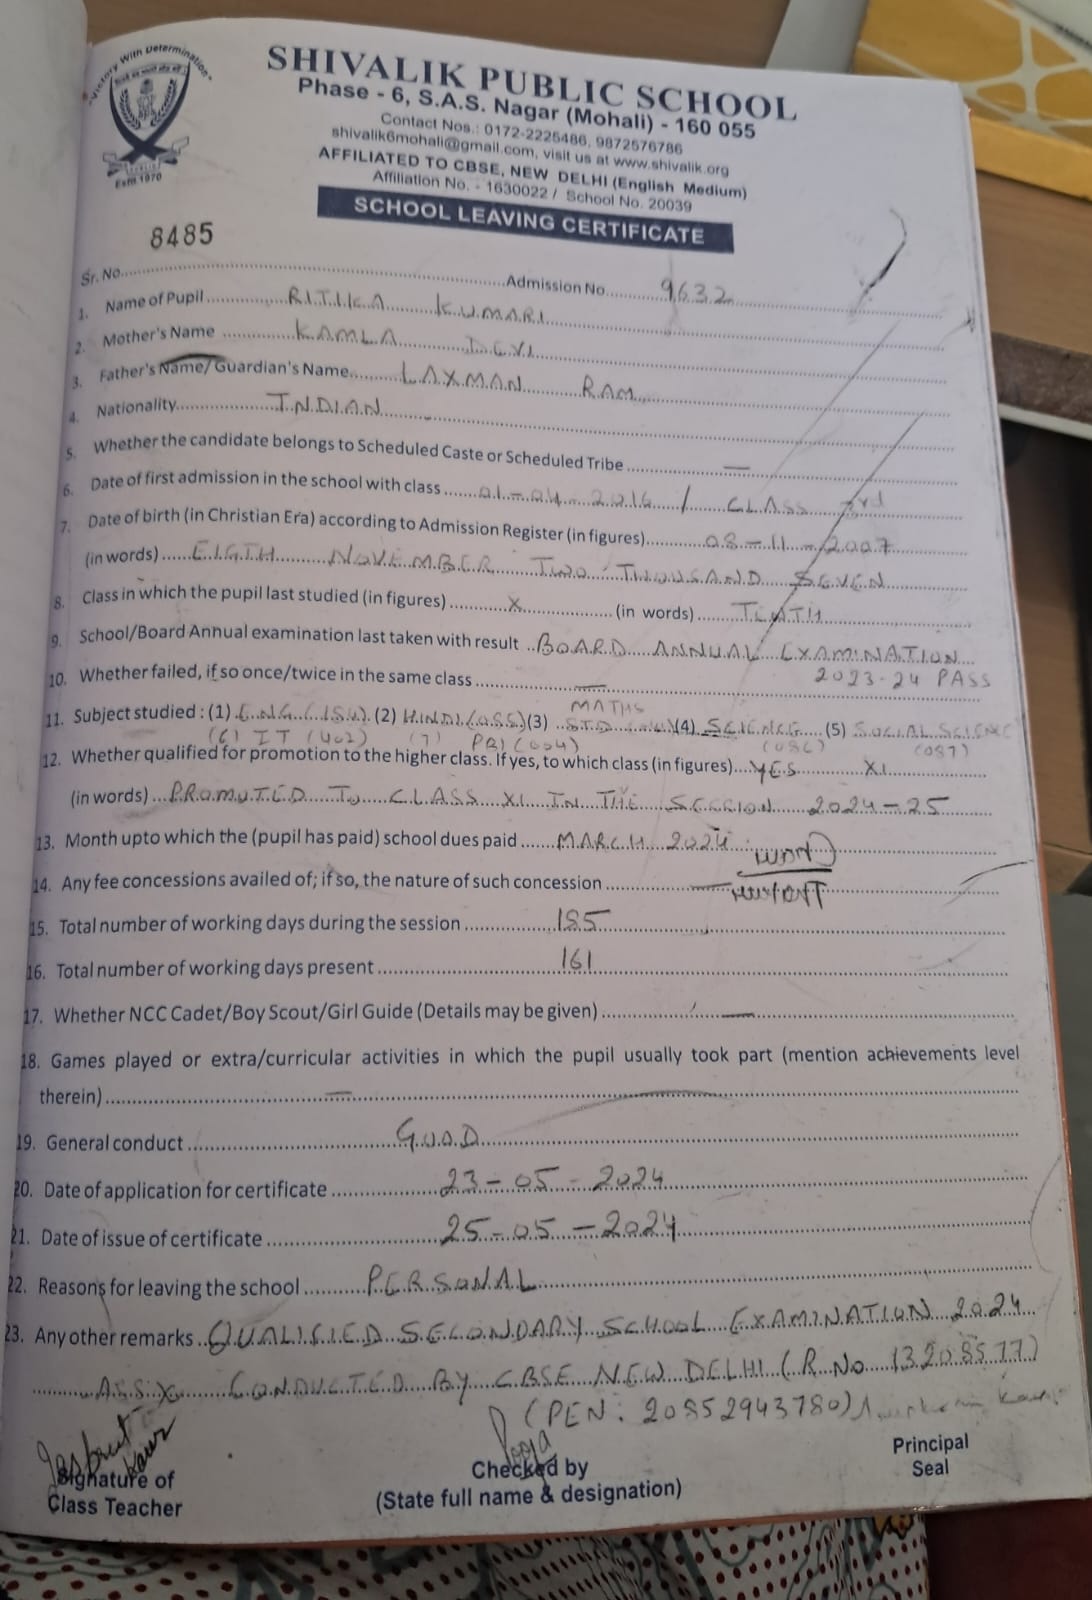 "Victory With Determination"
Estd 1970
SHIVALIK PUBLIC SCHOOL
Phase - 6, S.A.S. Nagar (Mohali) - 160 055
Contact Nos.: 0172-2225486, 9872576786
shivalik6mohali@gmail.com, visit us at www.shivalik.org
AFFILIATED TO CBSE, NEW DELHI (English Medium)
Affiliation No. - 1630022 / School No. 20039
SCHOOL LEAVING CERTIFICATE
8485
Sr. No. Admission No. 9632
1. Name of Pupil RITIKA KUMARI
2. Mother's Name KAMLA DEVI
3. Father's Name/Guardian's Name LAXMAN RAM
4. Nationality INDIAN
5. Whether the candidate belongs to Scheduled Caste or Scheduled Tribe —
6. Date of first admission in the school with class 01-04-2016 / CLASS 3rd
7. Date of birth (in Christian Era) according to Admission Register (in figures) 08-11-2007
(in words) EIGTH NOVEMBER TWO THOUSAND SEVEN
8. Class in which the pupil last studied (in figures) X (in words) TENTH
9. School/Board Annual examination last taken with result BOARD ANNUAL EXAMINATION
2023-24 PASS
10. Whether failed, if so once/twice in the same class —
MATHS
11. Subject studied : (1) ENG (184) (2) HINDI (085) (3) STD (041) (4) SCIENCE (5) SOCIAL SCIENCE
(6) IT (402) (7) PBI (004) (086) (087)
12. Whether qualified for promotion to the higher class. If yes, to which class (in figures) YES XI
(in words) PROMOTED TO CLASS XI IN THE SESSION 2024-25
13. Month upto which the (pupil has paid) school dues paid MARCH 2024
14. Any fee concessions availed of; if so, the nature of such concession —
15. Total number of working days during the session 185
16. Total number of working days present 161
17. Whether NCC Cadet/Boy Scout/Girl Guide (Details may be given) —
18. Games played or extra/curricular activities in which the pupil usually took part (mention achievements level
therein) —
19. General conduct GOOD
20. Date of application for certificate 23-05-2024
21. Date of issue of certificate 25-05-2024
22. Reasons for leaving the school PERSONAL
23. Any other remarks QUALIFIED SECONDARY SCHOOL EXAMINATION 2024
AISSX CONDUCTED BY CBSE NEW DELHI (R.No. 13208577)
(PEN: 20852943780)
Jaspreet Kaur Pooja
Signature of Class Teacher
Checked by
(State full name & designation)
Principal
Seal